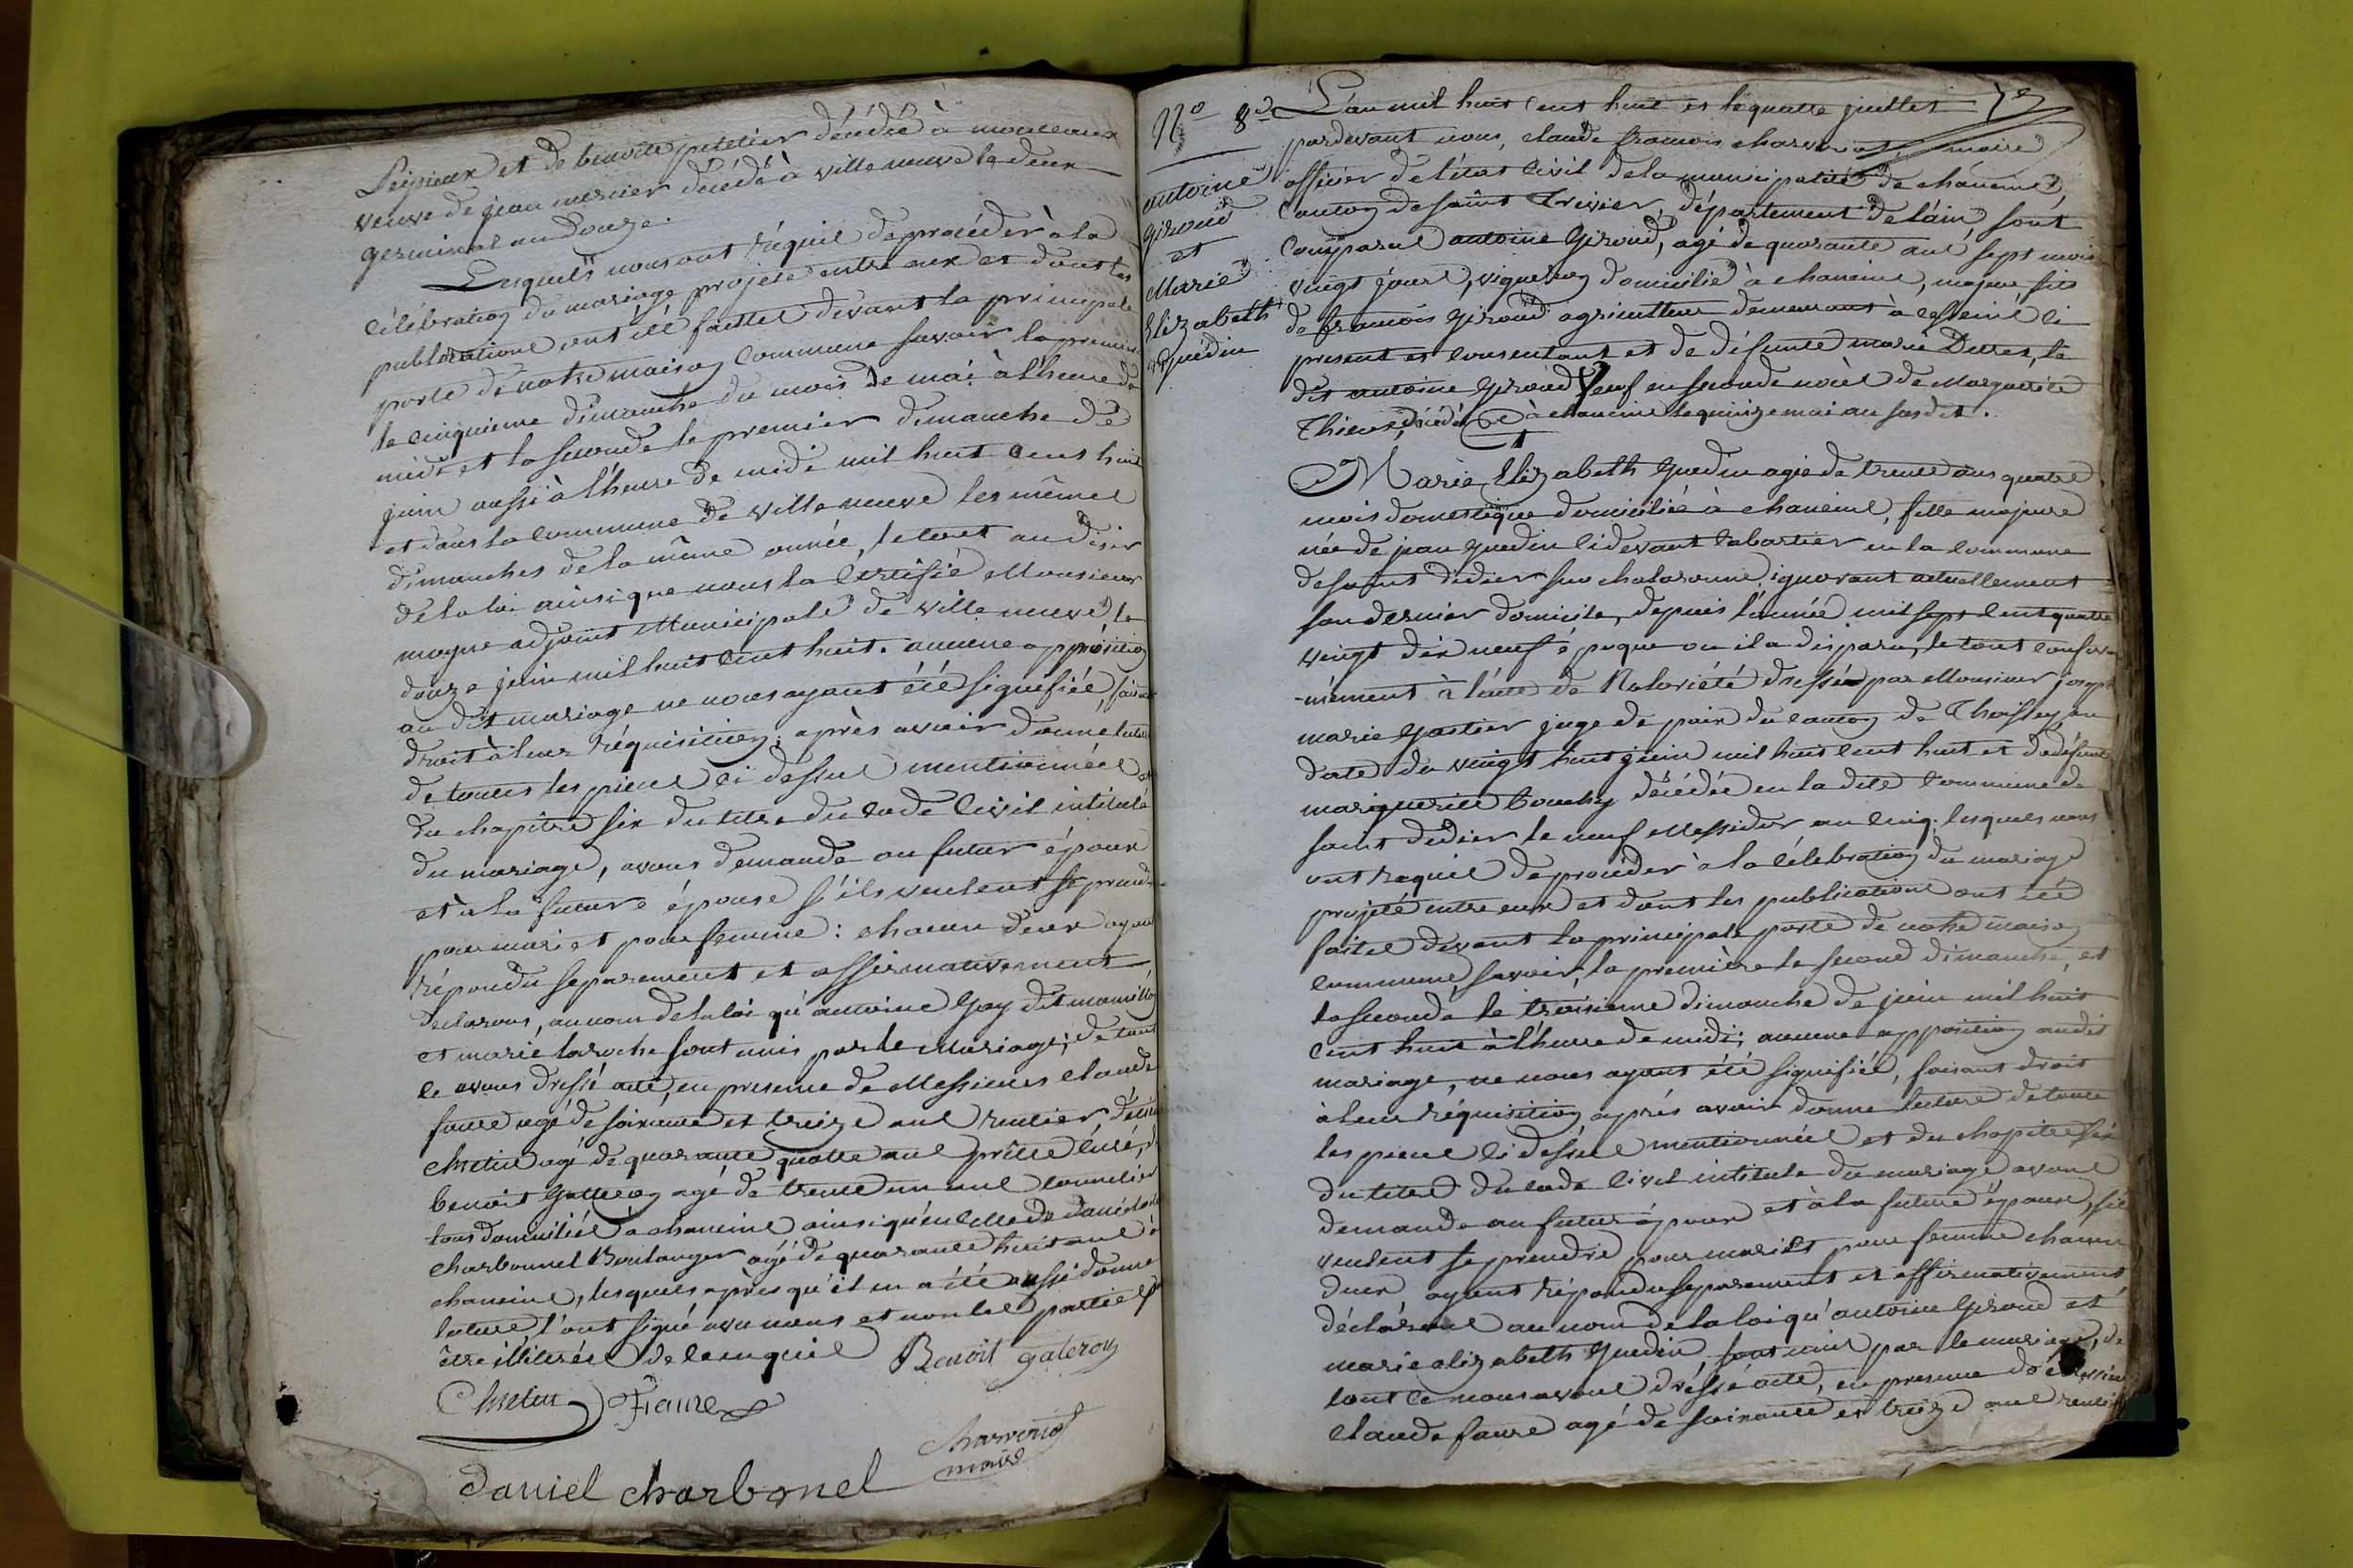 et de benoite peletier décédée à montceaux
veuve de jean mercier décédé à ville neuve le deux
germinal an douze.
Lesquels nous ont requis de procéder à la
célébration du mariage projeté entre eux et dont les
publications ont été faittes devant la principale
porte de notre maison commune savoir la premiere
le cinquieme dimanche du mois de mai à l'heure de
midi et la seconde le premier dimanche de
juin aussi à l'heure de midi mil huit cent huit
et dans la commune de ville neuve les mêmes
dimanches de la même année, le tout au desir
de la loi ainsi que nous l'a certifié Monsieur
moyne adjoint Municipale de ville neuve, le
douze juin mil huit cent huit. aucune opposition
au dit mariage ne nous ayant été signifiée, faisant
droit à leur réquisition; après avoir donné lecture
de toutes les pieces ci dessus mentionnées et
du chapitre six du titre du code civil intitulé
du mariage, avons demandé au futur époux
et à la future épouse s'ils veulent se prendre
pour mari et pour femme: chacun d'eux ayant
répondu séparement et affirmativement
declarons, au nom de la loi qu'antoine Gay dit
et marie laroche sont unis par le Mariage; de tout
ce avons dressé acte, en presence de Messieurs claude
faure agé de soixante et treize ans rentier,
Chretin agé de quarante quatre ans prêtre curé,
benoit Galleron agé de trente un ans tonnelier
tous domiciliés à chaneins ainsi qu'en celle de daniel
charbonnel Boulanger agé de quarante huit ans à
chaneins, lesquels après qu'il en a été aussi donné
lecture, l'ont signé avec nous et non les parties p
être illitérées de ce enquis
Benoit galeron
Chretin Faure
Charvériat
maire
daniel charbonel
No 8e
antoine
Giroud
et
Marie
Elizabeth
Guédin
L'an mil huit cent huit et le quatre juillet
pardevant nous, claude francois charveriat, maire
officier de l'état civil de la municipalité de chaneins,
canton de saint trivier, département de l'ain, sont
comparus antoine Giroud, agé de quarante ans sept mois
vingt jours, vigneron domicilié à chaneins, majeur fils
de francois Giroud agriculteur demeurant à ci
present et consentant et de défunte marie le
dit antoine Giroud Veuf en seconde noces de Marguerite
décédée à chaneins le quinze mai an susdit.
Marie Elizabeth Guedin agée de trente ans quatre
mois domestique domiciliée à chaneins, fille majeure
née de jean Guedin cidevant cabartier en la commune
de saint didier sur chalaronne, ignorant actuellement
son dernier domicile, depuis l'année mil sept cent quatre
vingt dix neuf époque ou il a disparu, le tout confor
-mément à l'acte de Notoriété dressé par Monsieur joseph
marie Gartier juge de paix du canton de Thoissey, en
date du vingt huit juin mil huit cent huit et de défunte
marguerite bouchy décédée en la dite commune de
saint didier le neuf Messidor an cinq; lesquels nous
ont requis de procéder à la célébration du mariage
projeté entre eux et dont les publications ont été
faites devant la principale porte de notre maison
commune, savoir, la première le second dimanche, et
la seconde le troisieme dimanche de juin mil huit
cent huit à l'heure de midi; aucune opposition au dit
mariage, ne nous ayant été signifiée, faisant droit
à leur réquisition, aprés avoir donné lecture de toutes
les pieces ci dessus mentionnées et du chapitre six
du titre du code civil intitulé du mariage avons
demandé au futur époux et à la future épouse, s'ils
veulent se prendre pour mari et pour femme chacun
d'eux ayant répondu séparement et affirmativement
déclarons au nom de la loi qu'antoine Giroud et
marie elizabeth Guedin, sont unis par le mariage, de
tout ce nous avons dréssé acte, en presence de Messieurs
claude faure agé de soixante et treize ans rentier